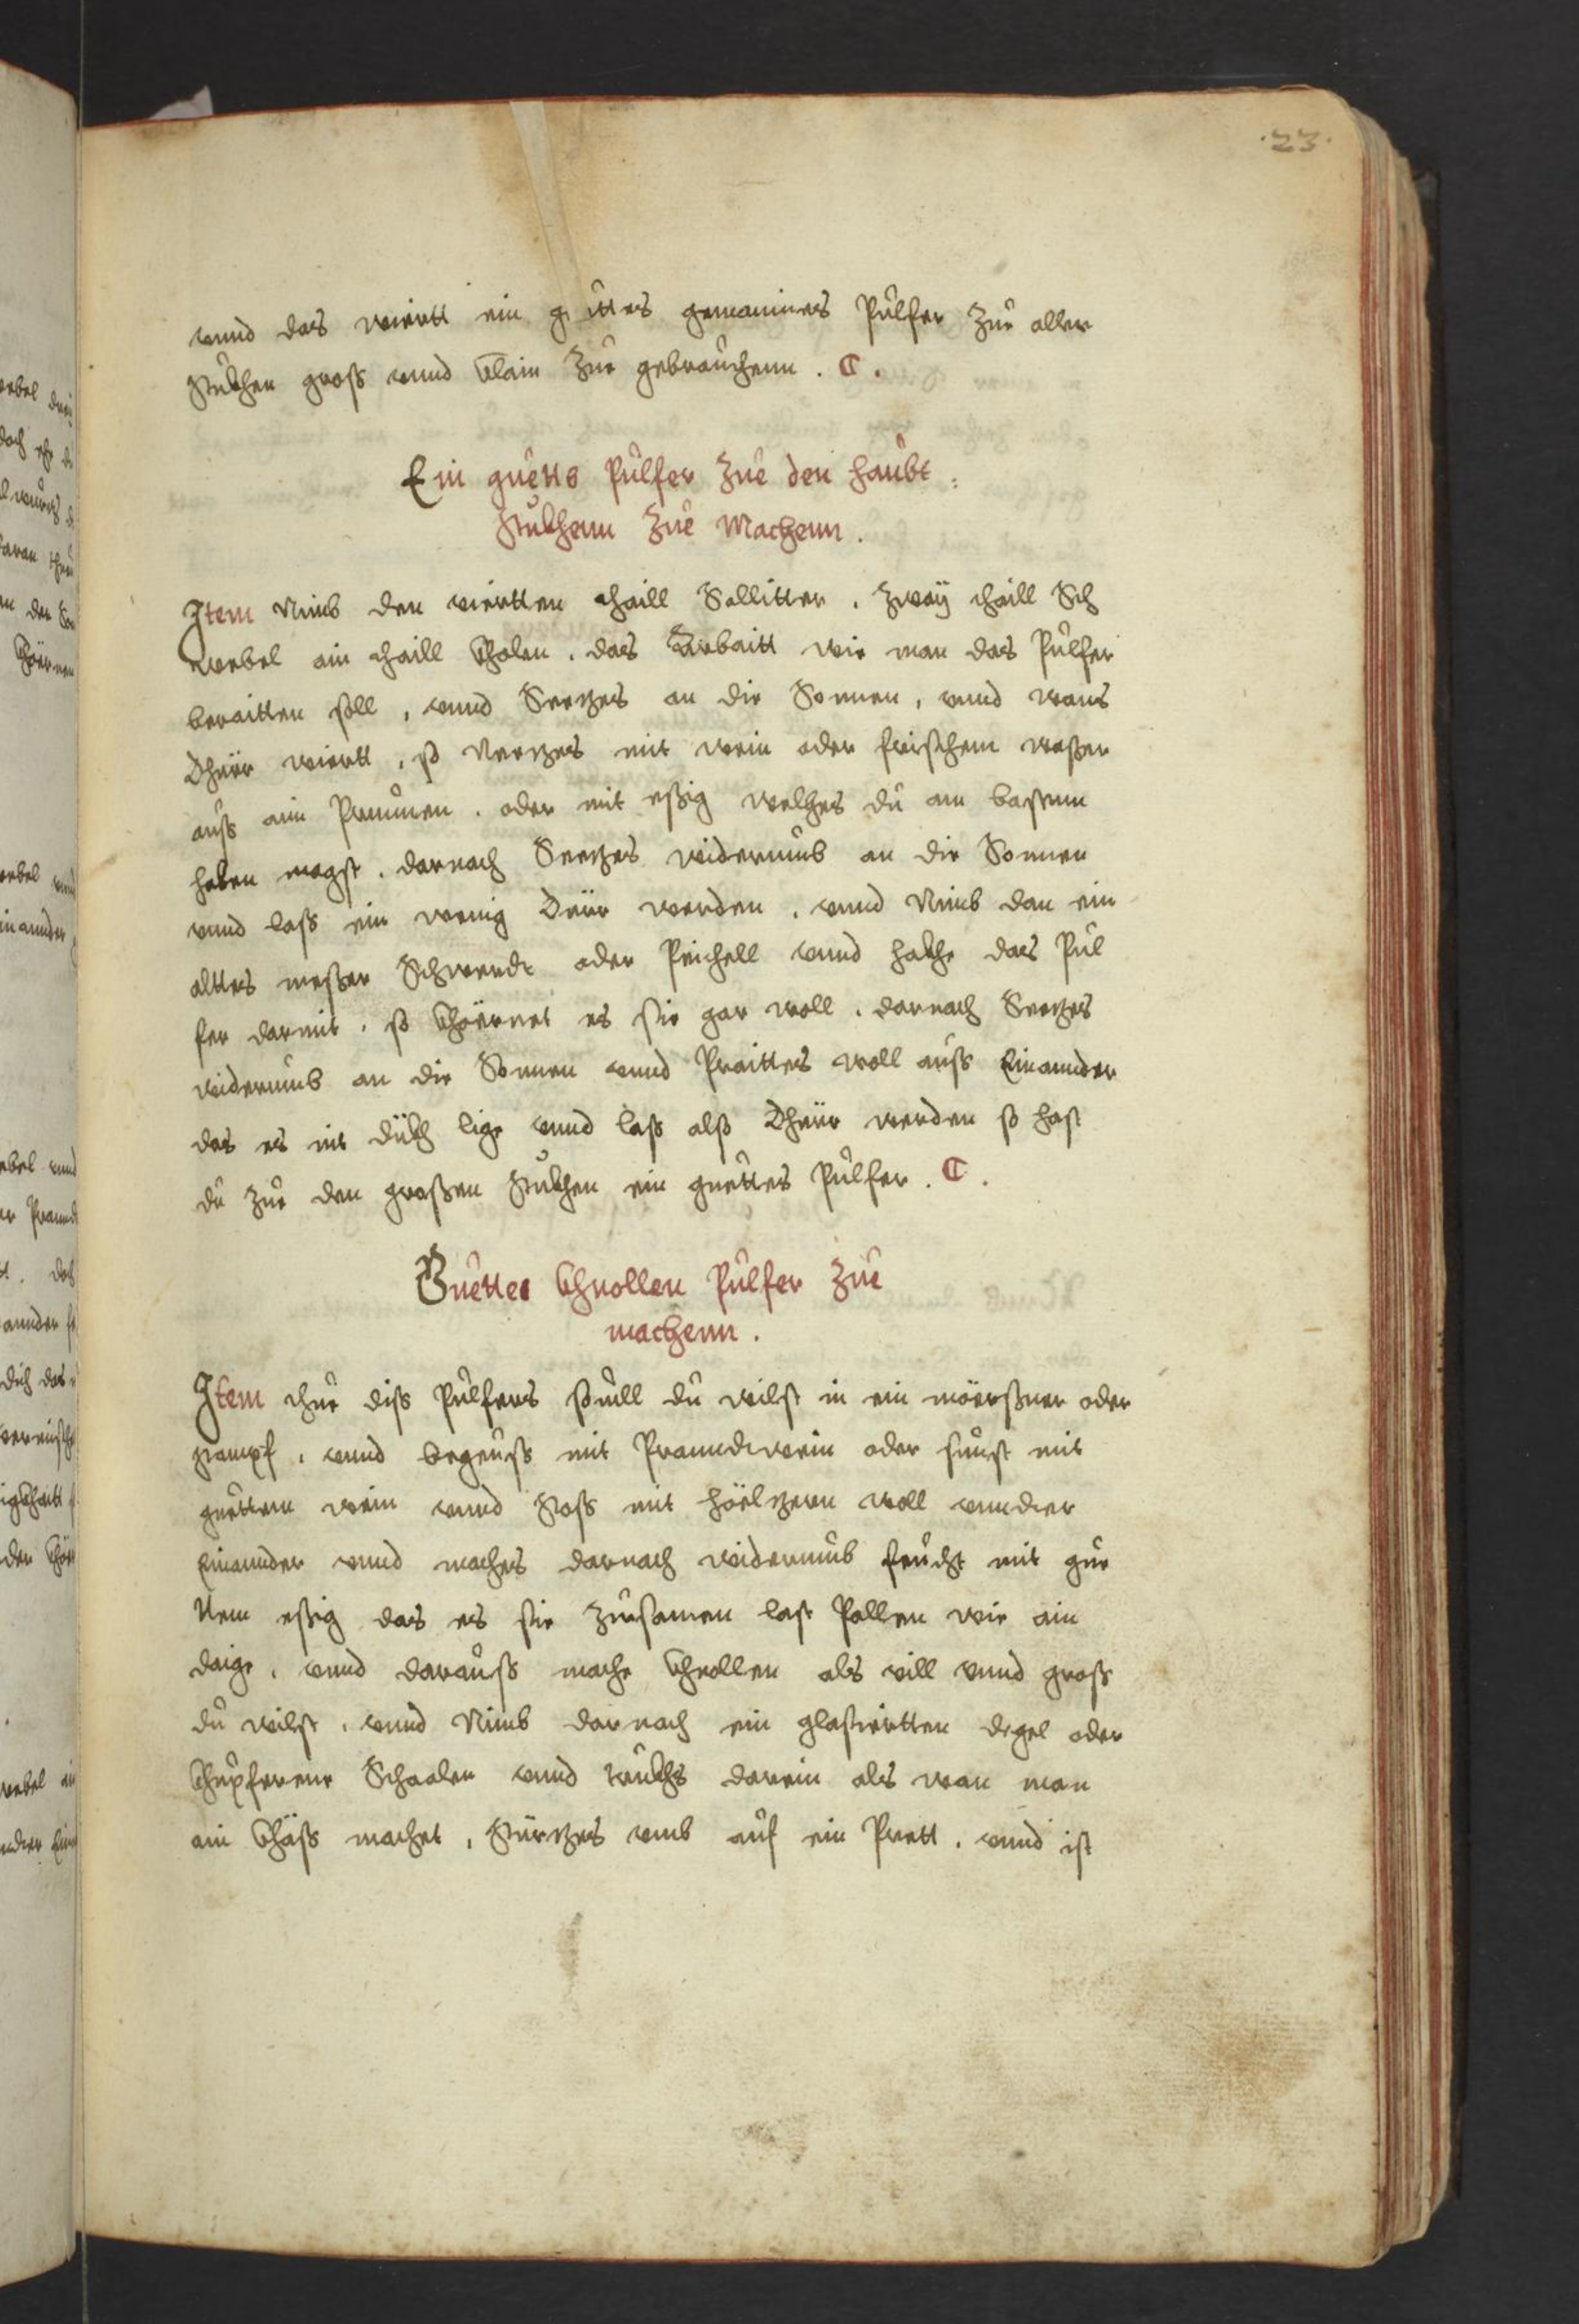 .23.
vnnd das wiertt ein guttes gemaines Pulfer zue aller
stukhen gross vnnd khlain zue gebrauchenn . C .
Ein guetts Pulfer zue den haubt :
stukhenn zue Machenn .
Item Nimb den viertten thaill Sallitter . zwaÿ thaill Sch
webel ain thaill kholen . das Arbaitt wie man das Pulfer
beraitten soll , vnnd Seetzes an die Sonnen , vnnd wans
Dhürr wiertt , so Neetzes mit wein oder frischem waßer
auß aim Prunnen . oder mit eßig welches du am bastenn
haben magst . darnach Seetzes widerumb an die Sonnen
vnnd laß ein wenig Dürr werden . vnnd Nimb dan ein
alttes meßer Schwerdt oder Peichell vnnd hakhe das Pul
fer darmit , so khöernet es sie gar woll . darnach Seetzes
widerumb an die Sonnen vnnd Praittes woll auß Einannder
das es nit dükh lige vnnd laß alß Dhürr werden so hast
du zue den großen stukhen ein guettes Pulfer . C .
Guettes khnollen Pulfer zue
machenn .
Item thue diß Pulfers souill du wilst in ein möerßner oder
stampf , vnnd begeuß mit Pranndtwein oder sunst mit
guettem wein vnnd stoß mit höeltzern woll vnndter
Einannder vnnd maches darnach widerumb feucht mit gue
ttem eßig das es sie zuesamen last Pallen wie ain
daige , vnnd darauß mache khnollen als vill vnnd groß
du wilst , vnnd Nimb darnach ein glasiertten degel oder
khupferene Schaalen vnnd trukhs darein als wan man
ain khäß machet , stürtzes vmb auf ein Prett . vnnd ist